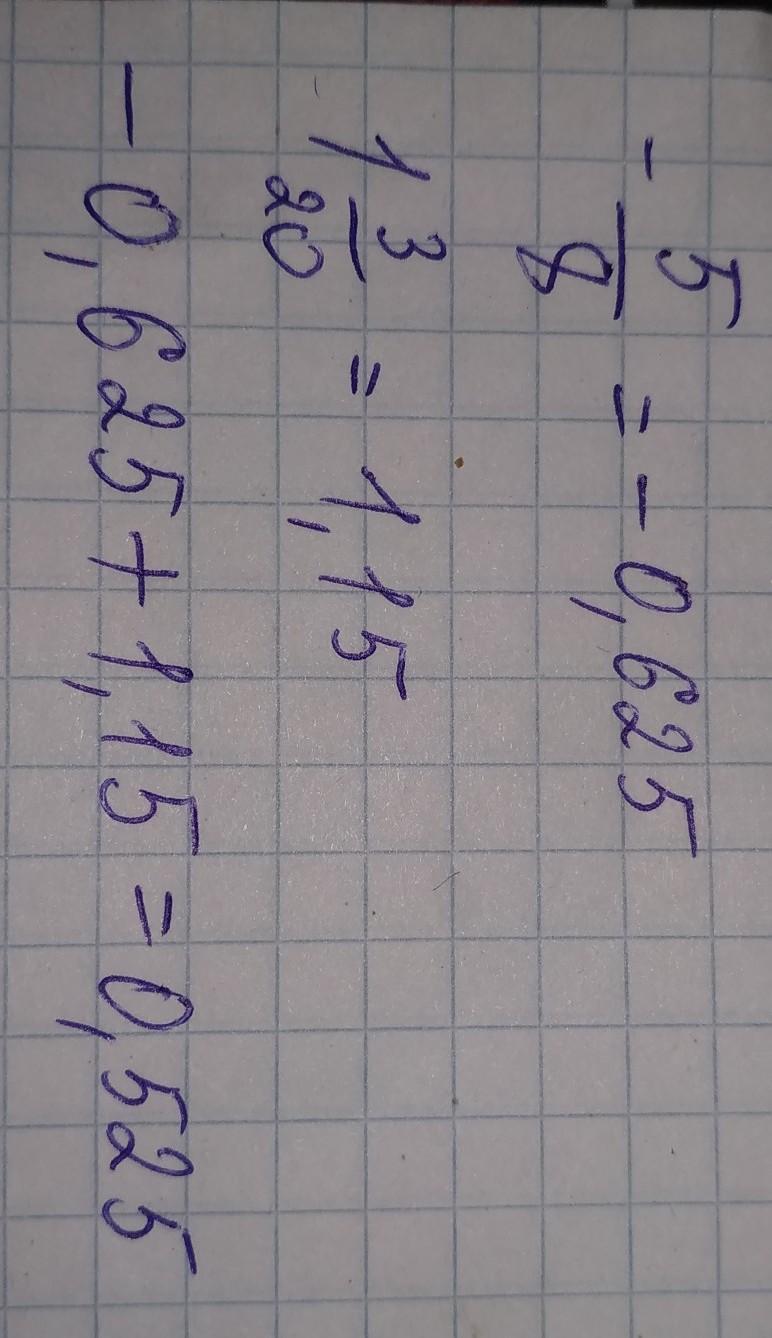 - 5/8 = - 0,625
1 3/20 = 1,15
- 0,625 + 1,15 = 0,525